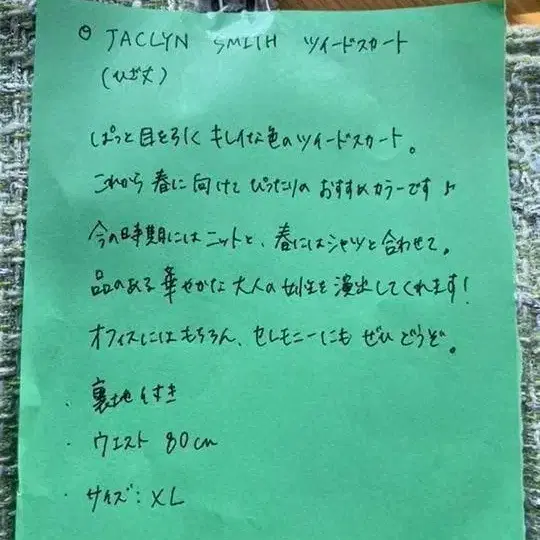 ○ JACLYN SMITH ツイードスカート
(ひざ丈)
ぱっと目を引く キレイな色のツイードスカート。
これから 春に向けて ぴったりの おすすめカラーです♪
今の時期にはニットと、春にはシャツと合わせて。
品のある 華やかな 大人の女性を演出してくれます!
オフィスにはもちろん、セレモニーにも ぜひ どうぞ。
・裏地付き
・ウエスト 80cm
・サイズ:XL